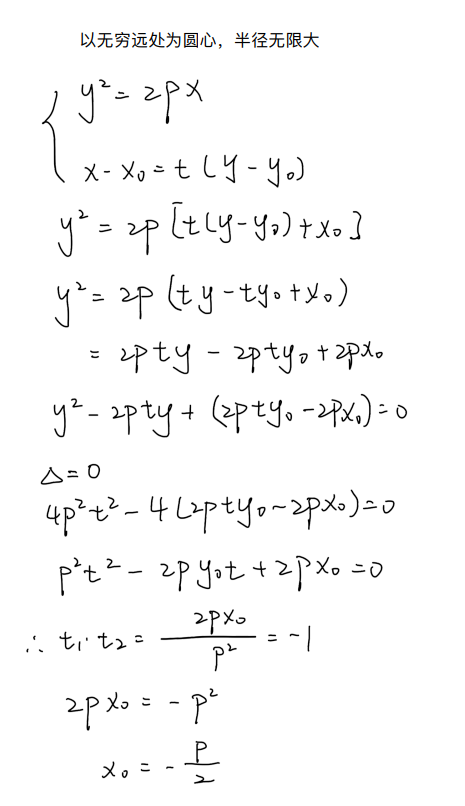 以无穷远处为圆心，半径无限大
{ y² = 2px
x - x₀ = t(y - y₀)
y² = 2p[t(y-y₀)+x₀]
y² = 2p(ty - ty₀ + x₀)
= 2pty - 2pty₀ + 2px₀
y² - 2pty + (2pty₀ - 2px₀) = 0
△ = 0
4p²t² - 4(2pty₀ - 2px₀) = 0
p²t² - 2py₀t + 2px₀ = 0
∴ t₁·t₂ = 2px₀/p² = -1
2px₀ = -p²
x₀ = -p/2